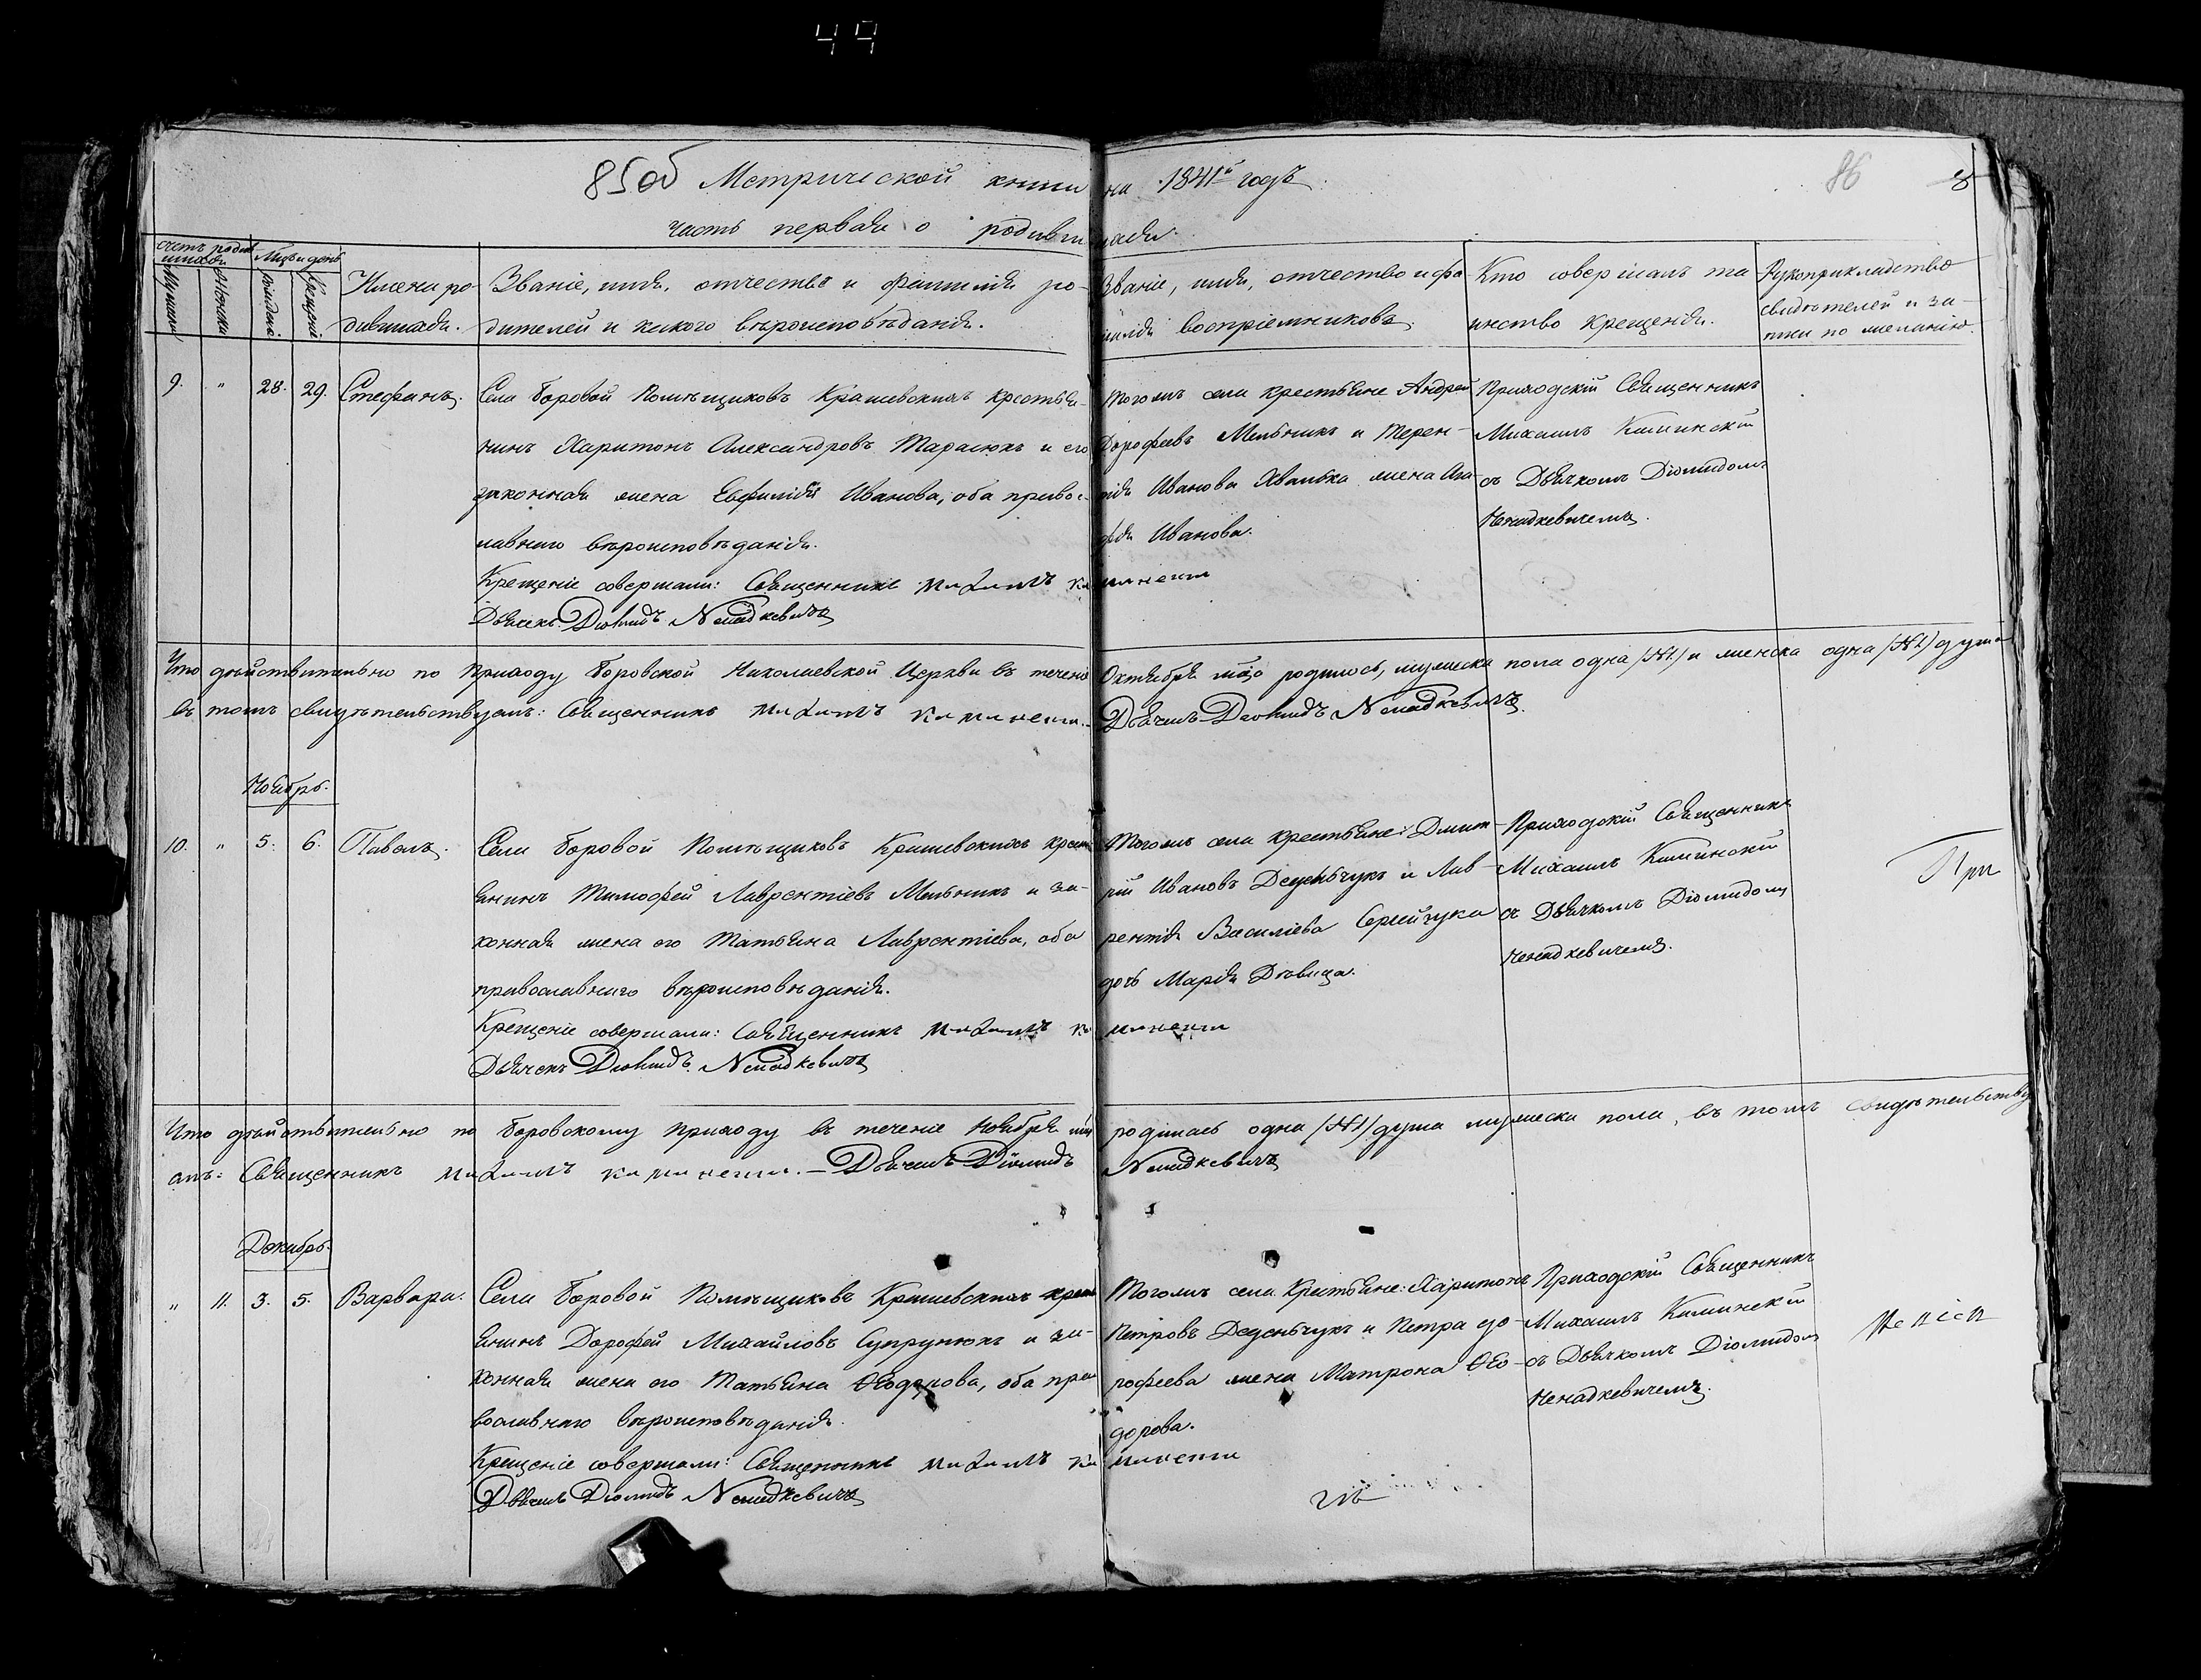 49
85об Метрической книги на 1841й годъ 86 8
часть первая о родившихся.
счетъ родившихся
Мцъ и день
Мужска
Женска
Рожденія
Крещенія
Имена родившихся.
Званіе, имя, отчество и фамилія ро-
дителей и какого вѣроисповѣданія.
Званіе, имя, отчество и фа-
милія воспріемниковъ.
Кто совершалъ та
инство крещенія.
Рукоприкладство
свидѣтелей и за-
писи по желанію.
9. " 28. 29. Стефанъ.
Села Боровой Помѣщиковъ Крашевскихъ крестья-
нинъ Харитонъ Александровъ Тарасюкъ и его
законная жена Евфимія Иванова, оба право-
славнаго вѣроисповѣданія.
Крещеніе совершали: Священникъ Михаилъ Каминскій
Дьячекъ Діомидъ Ненадкевичъ
Тогожъ села крестьяне Андрей
Дорофеевъ Мельникъ и Терен-
тія Иванова Хвалька жена Ага-
фія Иванова.
Приходскій Священникъ
Михаилъ Каминскій
съ Дьячкомъ Діомидомъ
Ненадкевичемъ.
Что дѣйствительно по приходу Боровской Николаевской Церкви въ теченіе Октября мца родилось, мужеска пола одна /№1/ и женска одна /№1/ душа
въ томъ свидѣтельствуемъ: Священникъ Михаилъ Каминскій. Дьячекъ Діомидъ Ненадкевичъ.
Ноябрь.
10. " 5. 6. Павелъ.
Села Боровой Помѣщиковъ Крашевскихъ крест
янинъ Тимофей Лаврентіевъ Мельникъ и за-
конная жена его Татьяна Лаврентіева, оба
православнаго вѣроисповѣданія.
Крещеніе совершали: Священникъ Михаилъ Каминскій
Дьячекъ Діомидъ Ненадкевичъ
Тогожъ села крестьяне: Дмит-
рій Ивановъ Деденьчукъ и Лав-
рентія Василіева Сергейчука
дочь Марія Дѣвица.
Приходскій Священникъ
Михаилъ Каминскій
съ Дьячкомъ Діомидомъ
Ненадкевичемъ.
При
Что дѣйствительно по Боровскому приходу въ теченіе Ноября мца родилась одна /№1/ душа мужеска пола, въ томъ свидѣтельству
емъ: Священникъ Михаилъ Каминскій. — Дьячекъ Діомидъ Ненадкевичъ
Декабрь.
" 11. 3. 5. Варвара.
Села Боровой Помѣщиковъ Крашевскихъ крест
янинъ Дорофей Михайловъ Супрунюкъ и за-
конная жена его Татьяна Ѳеодорова, оба пра
вославнаго вѣроисповѣданія.
Крещеніе совершали: Священникъ Михаилъ Каминскій
Дьячекъ Діомидъ Ненадкевичъ
Тогожъ села Крестьяне: Харитонъ
Петровъ Деденьчукъ и Петра До-
рофеева жена Матрона Ѳео-
дорова.
Приходскій Священникъ
Михаилъ Каминскій
съ Дьячкомъ Діомидомъ
Ненадкевичемъ.